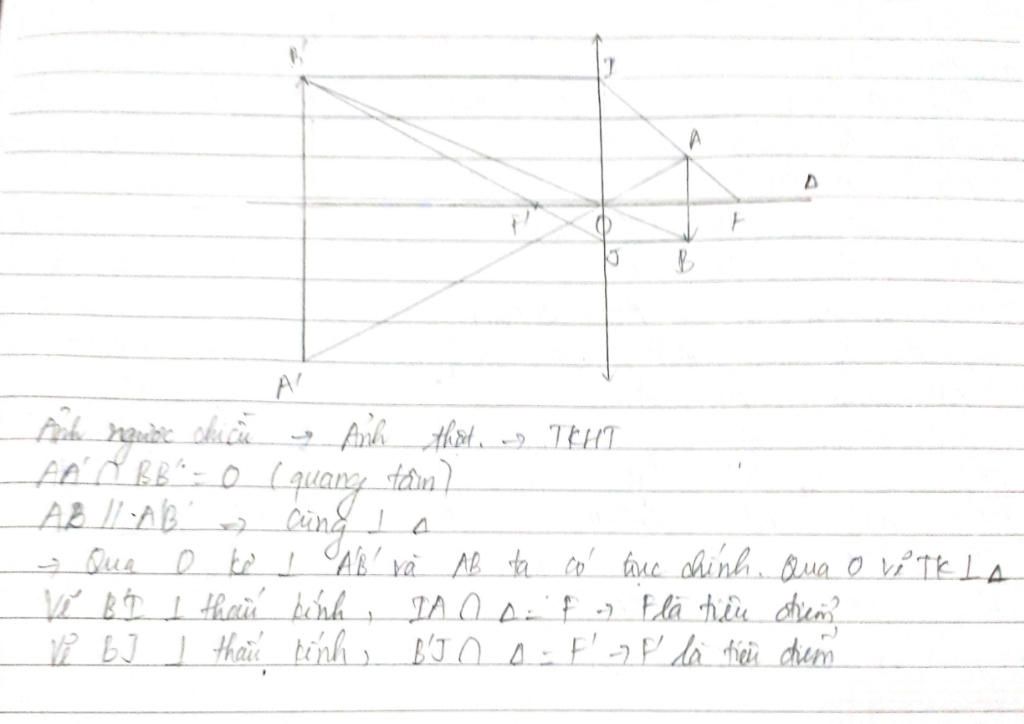 B'
I
A
Δ
F'
O
F
J
B
A'
Ảnh ngược chiều → Ảnh thật. → TKHT
AA' ∩ BB' = O (quang tâm)
AB // A'B' → cùng ⊥ Δ
→ Qua O kẻ ⊥ A'B' và AB ta có trục chính. Qua O vẽ TK ⊥ Δ
Vẽ B'I ⊥ thấu kính, IA ∩ Δ = F → F là tiêu điểm
Vẽ BJ ⊥ thấu kính, B'J ∩ Δ = F' → F' là tiêu điểm